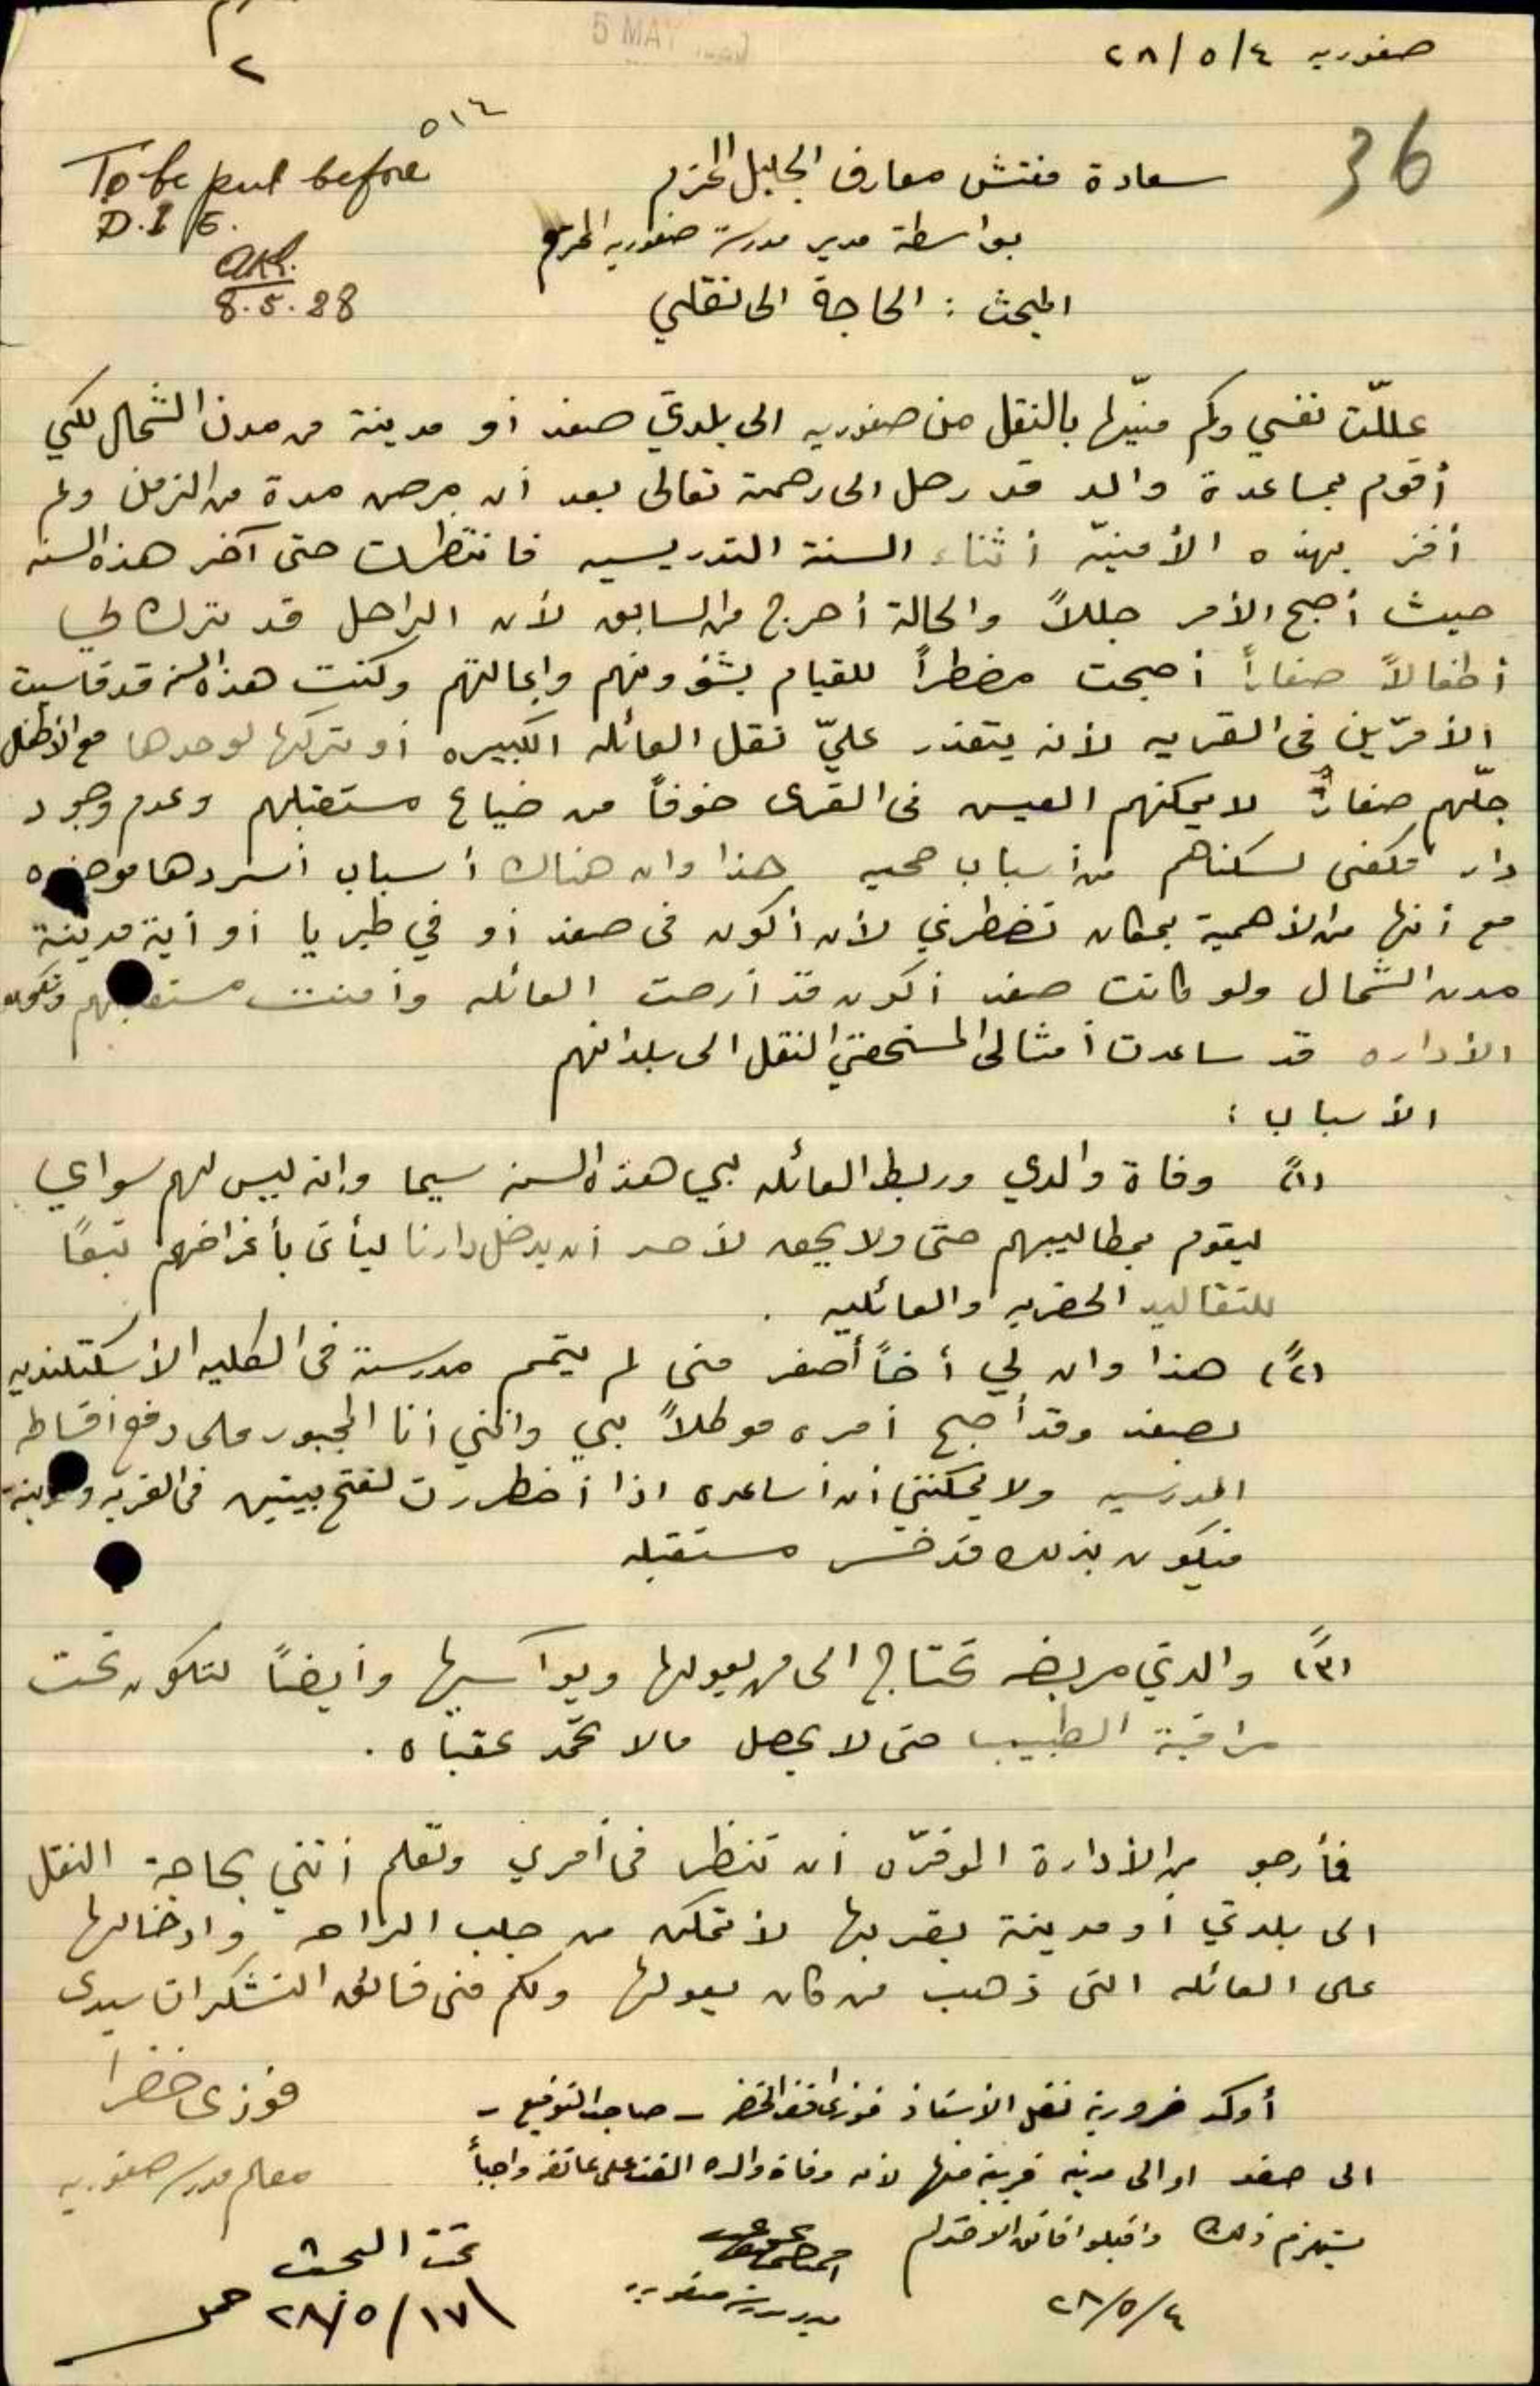 صفوريه ٢٨/٥/٤
5 MAY
٢
٥١٤
36
To be put before
D.I/E.
8.5.28
سعادة مفتش معارف الجليل المحترم
بواسطة مدير مدرسة صفوريه المحترم
المبحث : الحاجة الى نقلي
عللّت نفسي وكم منيّتها بالنقل من صفوريه الى بلدتي صفد أو مدينة من مدن الشمال لكي
أقوم بمساعدة والد قد رحل الى رحمته تعالى بعد أن مرض مدة من الزمن ولم
أفز بهذه الأمنيّه أثناء السنة التدريسيه فانتظرت حتى آخر هذه السنه
حيث أصبح الأمر جللاً والحالة أحرج من السابق لأن الراحل قد ترك لي
أطفالاً صغاراً أصبحت مضطراً للقيام بشؤونهم واعالتهم وكنت هذه السنه قد قاسيت
الأمرّين في القريه لأنه يتعذر عليّ نقل العائله الكبيره أو تركها لوحدها مع الأطفال
جلّهم صغارٌ لا يمكنهم العيس في القرى خوفاً من ضياع مستقبلهم وعدم وجود
دار تكفي لسكناهم من أسباب صحيه هذا وان هناك أسباب أسردها موجزه
مع أنها من الأهمية بمكان تضطرني لأن أكون في صفد أو في طبريا أو أية مدينة
مدن الشمال ولو كانت صفد أكون قد أرحت العائله وأمنت مستقبلهم وتكون
الأداره قد ساعدت أمثالي المستحقين النقل الى بلدانهم
الأسباب :
(١ً) وفاة والدي وربط العائله بي هذه السنه سيما وانه ليس لهم سواي
ليقوم بمطاليبهم حتى ولا يحق لأحد أن يدخل دارنا ليأتي بأغراضهم تبعًا
للتقاليد الحضريه والعائليه .
(٢ً) هذا وان لي أخاً أصغر مني لم يتمم مدرسته في الكليه الأسكتلنديه
بصفد وقد أصبح أمره موكلاً بي وانني أنا المجبور على دفع أقساطه
المدرسيه ولا يمكنني أن أساعده اذا أضطررت لفتح بيتين في القريه والمدينة
فيكون بذلك قد خسر مستقبله
(٣ً) والدتي مريضه تحتاج الى من يعولها ويواسيها وأيضاً لتكون تحت
مراقبة الطبيب حتى لا يحصل مالا تحمد عقباه .
فأرجو من الأدارة الموقرّه أن تنظر في أمري وتعلم أنني بحاجة النقل
الى بلدتي أو مدينة بقربها لأتمكن من جلب الراحه وادخالها
على العائله التي ذهب من كان يعولها ولكم مني فائق التشكرات سيدي
فوزي خضرا
معلم مدرسة صفوريه
أوكد ضرورية نقل الأستاذ فوزي الخضرا – صاحب التوقيع –
الى صفد او الى مدينه قريبة منها لأن وفاة والده القت على عاتقه واجباً
يستلزم ذلك واقبلوا فائق الاحترام
٢٨/٥/٤
مدير مدرسة صفوريه
تحت البحث
٢٨/٥/١٧